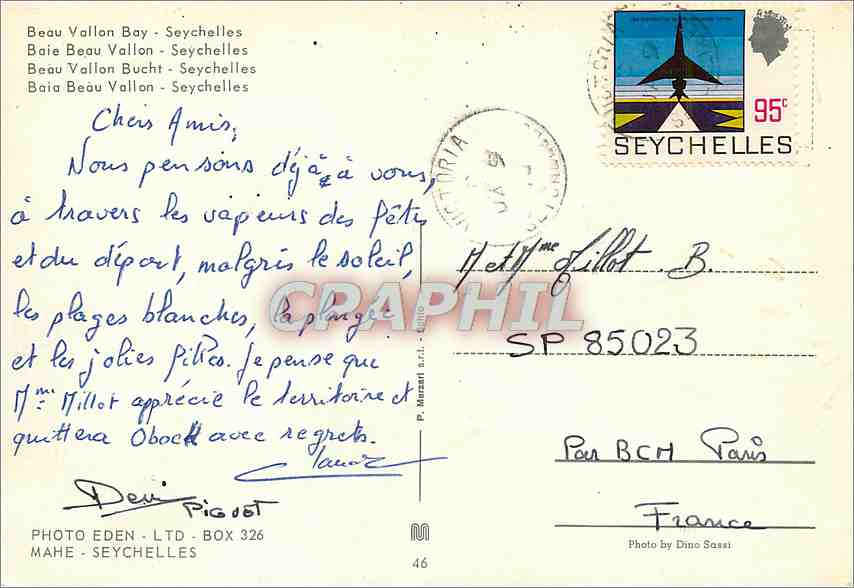 Beau Vallon Bay - Seychelles
Baie Beau Vallon - Seychelles
Beau Vallon Bucht - Seychelles
Baia Beau Vallon - Seychelles
Chers Amis,
Nous pensons déjà à vous,
à travers les vapeurs des fêtes
et du départ, malgrés le soleil,
les plages blanches, la plongée
et les jolies filles. Je pense que
Mme Millot apprécie le territoire et
quittera Obock avec regrets.
Deni
PIGUET
PHOTO EDEN - LTD - BOX 326
MAHE - SEYCHELLES
P. Marzari s.r.l. - Schio
46
95c
SEYCHELLES
VICTORIA
VICTORIA
M et Mme Millot. B.
SP 85023
Par BCM Paris
France
Photo by Dino Sassi
CPAPHIL